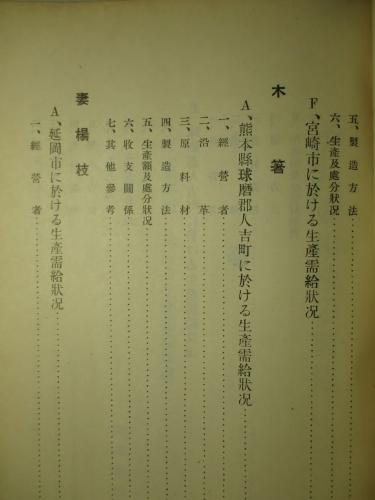 五、製造方法
六、生產及處分狀况
F、宮崎市に於ける生產需給狀况
木箸
A、熊本縣球磨郡人吉町に於ける生產需給狀况
一、經營者
二、沿革
三、原料材
四、製造方法
五、生產額及處分狀况
六、收支關係
七、其他參考
妻楊枝
A、延岡市に於ける生產需給狀况
一、經營者